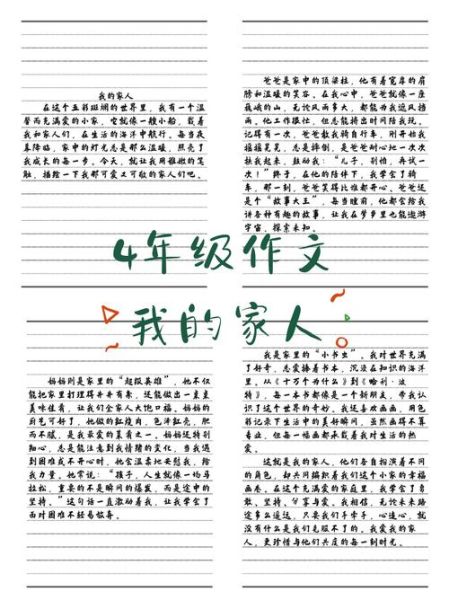 我的家人
在这个五彩斑斓的世界里，我有一个温
馨而充满爱的小家，它就像一艘小船，载着
我和家人们，在生活的海洋中航行。每当夜
幕降临，家中的灯光总是那么温暖，照亮了
我成长的每一步。今天，就让我用稚嫩的笔
触，描绘一下我那可爱又可敬的家人们吧。
爸爸是家中的顶梁柱，他有着宽厚的肩
膀和温暖的笑容。在我心中，爸爸就像一座
巍峨的山，无论风雨多大，都能为我遮风挡
雨。他工作很忙，但总能挤出时间陪我玩。
记得有一次，爸爸教我骑自行车，刚开始我
摇摇晃晃，总是摔倒，是爸爸耐心地一次次
扶我起来，鼓励我：“儿子，别怕，再试一
次！”终于，在他的陪伴下，我学会了骑
车，那一刻，爸爸笑得比谁都开心。爸爸还
是个“故事大王”，每当睡前，他都会给我
讲各种有趣的故事，让我在梦乡里也能遨游
宇宙，探索未知。
4年级作文
我的家人
妈妈则是家里的“超级英雄”，她不仅
能把家里打理得井井有条，还能做出一桌桌
美味佳肴，让我们全家人大饱口福。妈妈的
厨艺可好了，她做的红烧肉，色泽红亮，肥
而不腻，是我最爱的菜肴之一。妈妈还特别
细心，总是能注意到我情绪的变化，当我遇
到困难或不开心时，她会温柔地安慰我，给
我力量。她常说：“孩子，人生就像一场马
拉松，重要的不是瞬间的爆发，而是途中的
坚持。”这句话一直激励着我，让我学会了
面对困难不轻易放弃。
我是家里的“小书虫”。我对世界充满
了好奇，总爱捧着书本，沉浸在知识的海洋
里。从《十万个为什么》到《哈利·波
特》，每一本书都像是一个新朋友，带我认
识了这个世界的奇妙。我还喜欢画画，用色
彩记录下生活中的美好瞬间，虽然画得不算
专业，但每一幅画都承载着我对生活的热
爱。
这就是我的家人，他们各自扮演着不同
的角色，却共同编织着我们这个小家的幸福
画卷。在这个充满爱的家庭里，我学会了勇
敢、坚持、分享与爱。我相信，无论未来路
途多么遥远，只要我们手牵手，心连心，就
没有什么是我们克服不了的。我爱我的家
人，更珍惜与他们共度的每一刻时光。